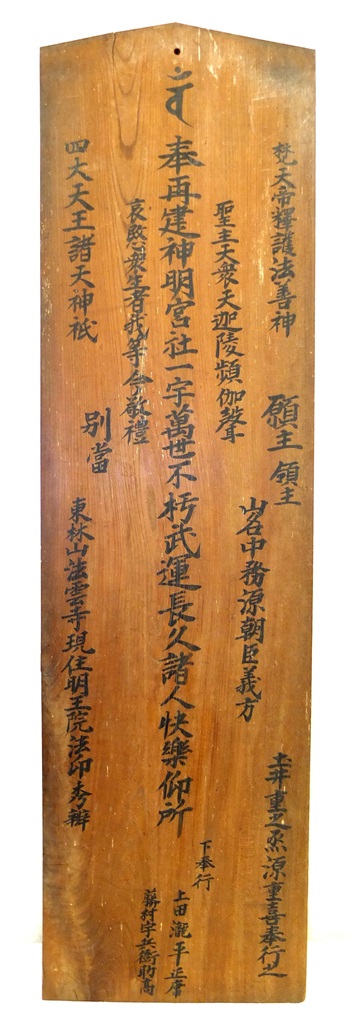 梵天帝釋護法善神
願主 領主
山名中務源朝臣義方
土井重之丞源重喜奉行之
聖主天衆天迦陵頻伽聲
奉再建神明宮社一宇萬世不朽武運長久諸人快樂仰所
下奉行
上田瀧平正
村宇兵衛助高
哀愍衆生者我等今敬禮
四大天王諸天神祇
別當
東林山法雲寺現住明王院法印秀辦